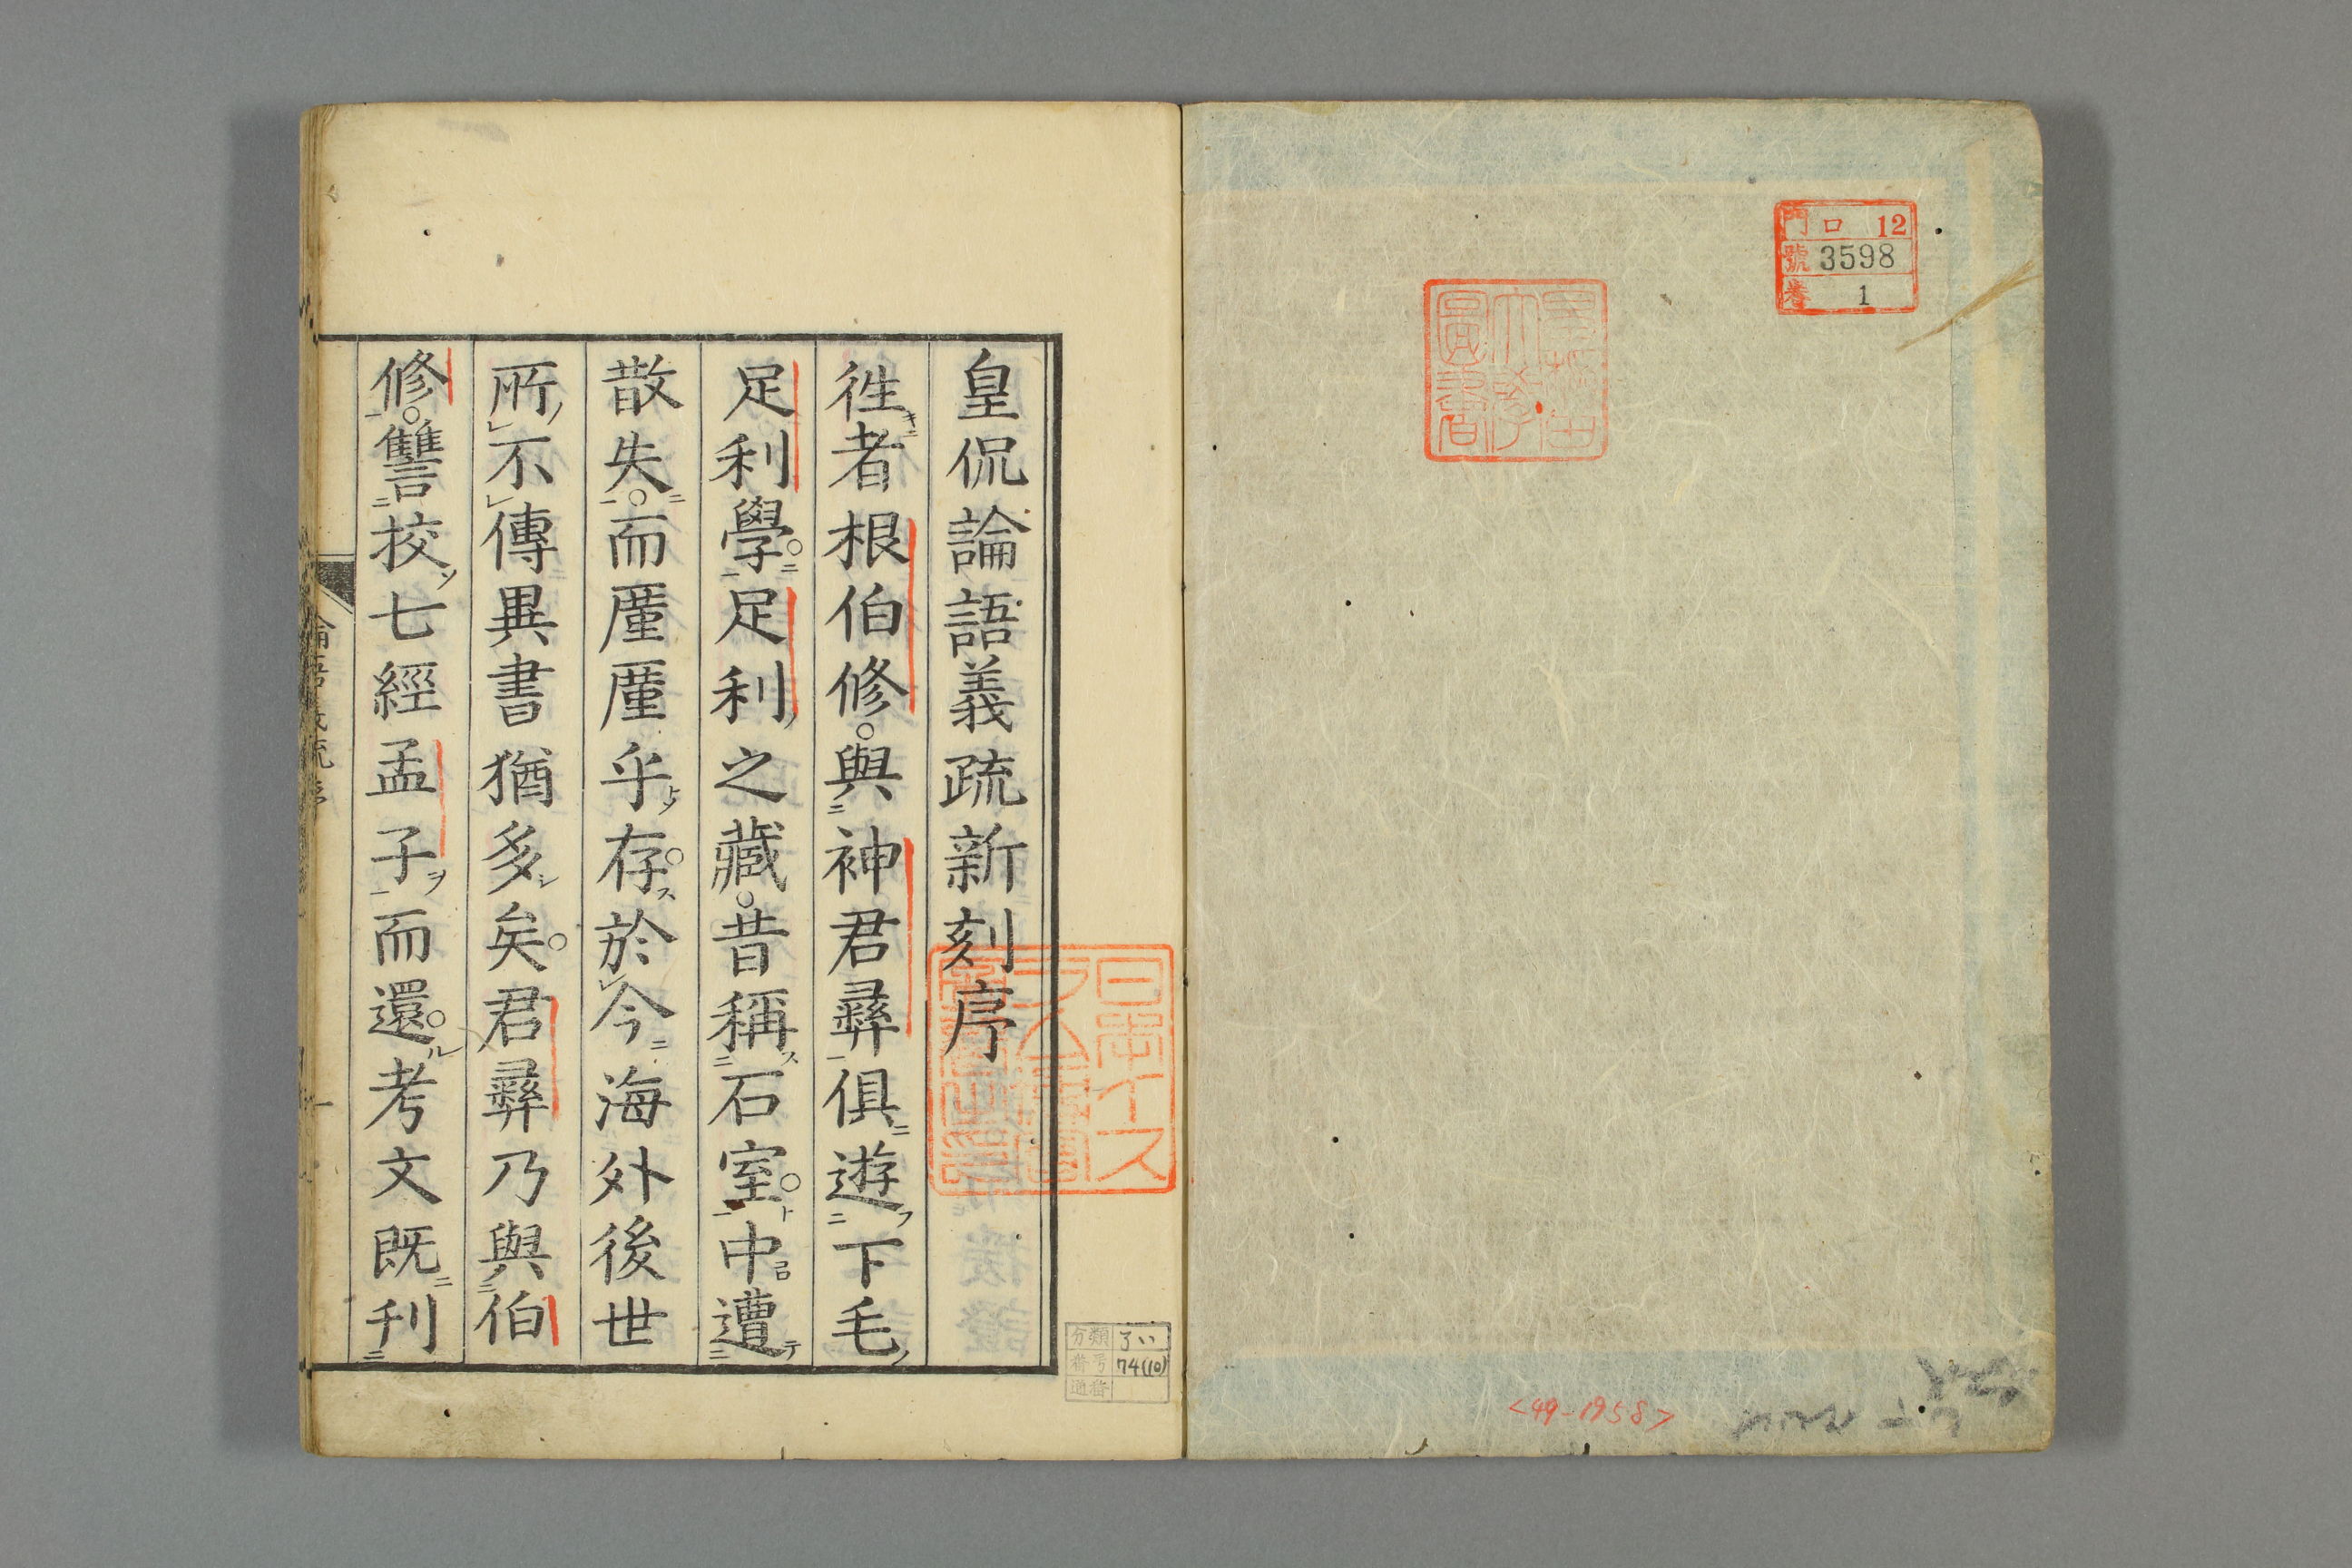 門 口 12
號 3598
巻 1
早稲田
大學
圖書
皇侃論語義疏新刻序
徃者根伯修與神君彝俱遊下毛
足利學足利之藏昔稱石室中遭
散失而厪厪乎存於今海外後世
所不傳異書猶多矣君彝乃與伯
修讐校七經孟子而還考文既刊
分類
番号 74(10)
<49-1958>